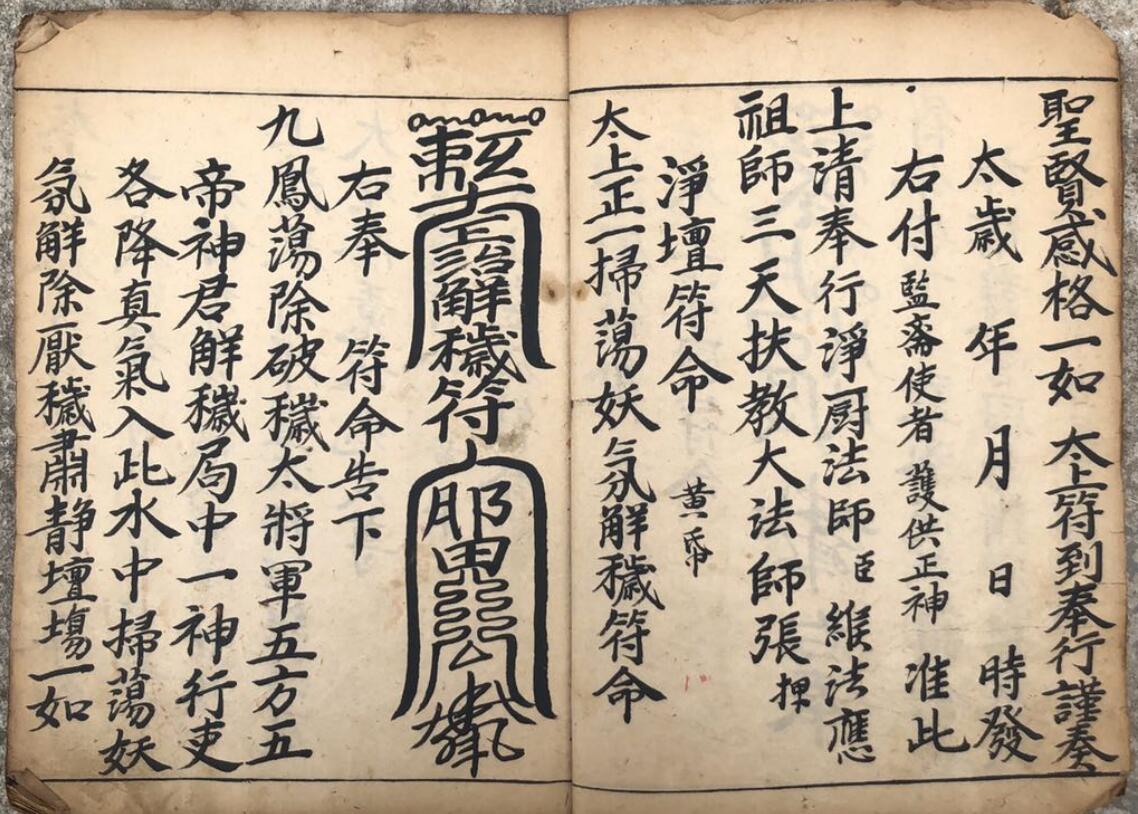 聖賢感格一如 太上符到奉行謹奏
太歲 年 月 日 時發
右付監齋使者 護供正神 准此
上清奉行淨厨法師臣 緱法應
祖師三天扶教大法師張 押
淨壇符命 黄帋
太上正一掃蕩妖氛解穢符命
治解穢符
右奉 符命告下
九鳳蕩除破穢太將軍五方五
帝神君解穢局中一神行吏
各降真氣入此水中掃蕩妖
氛解除厭穢肅静壇塲一如